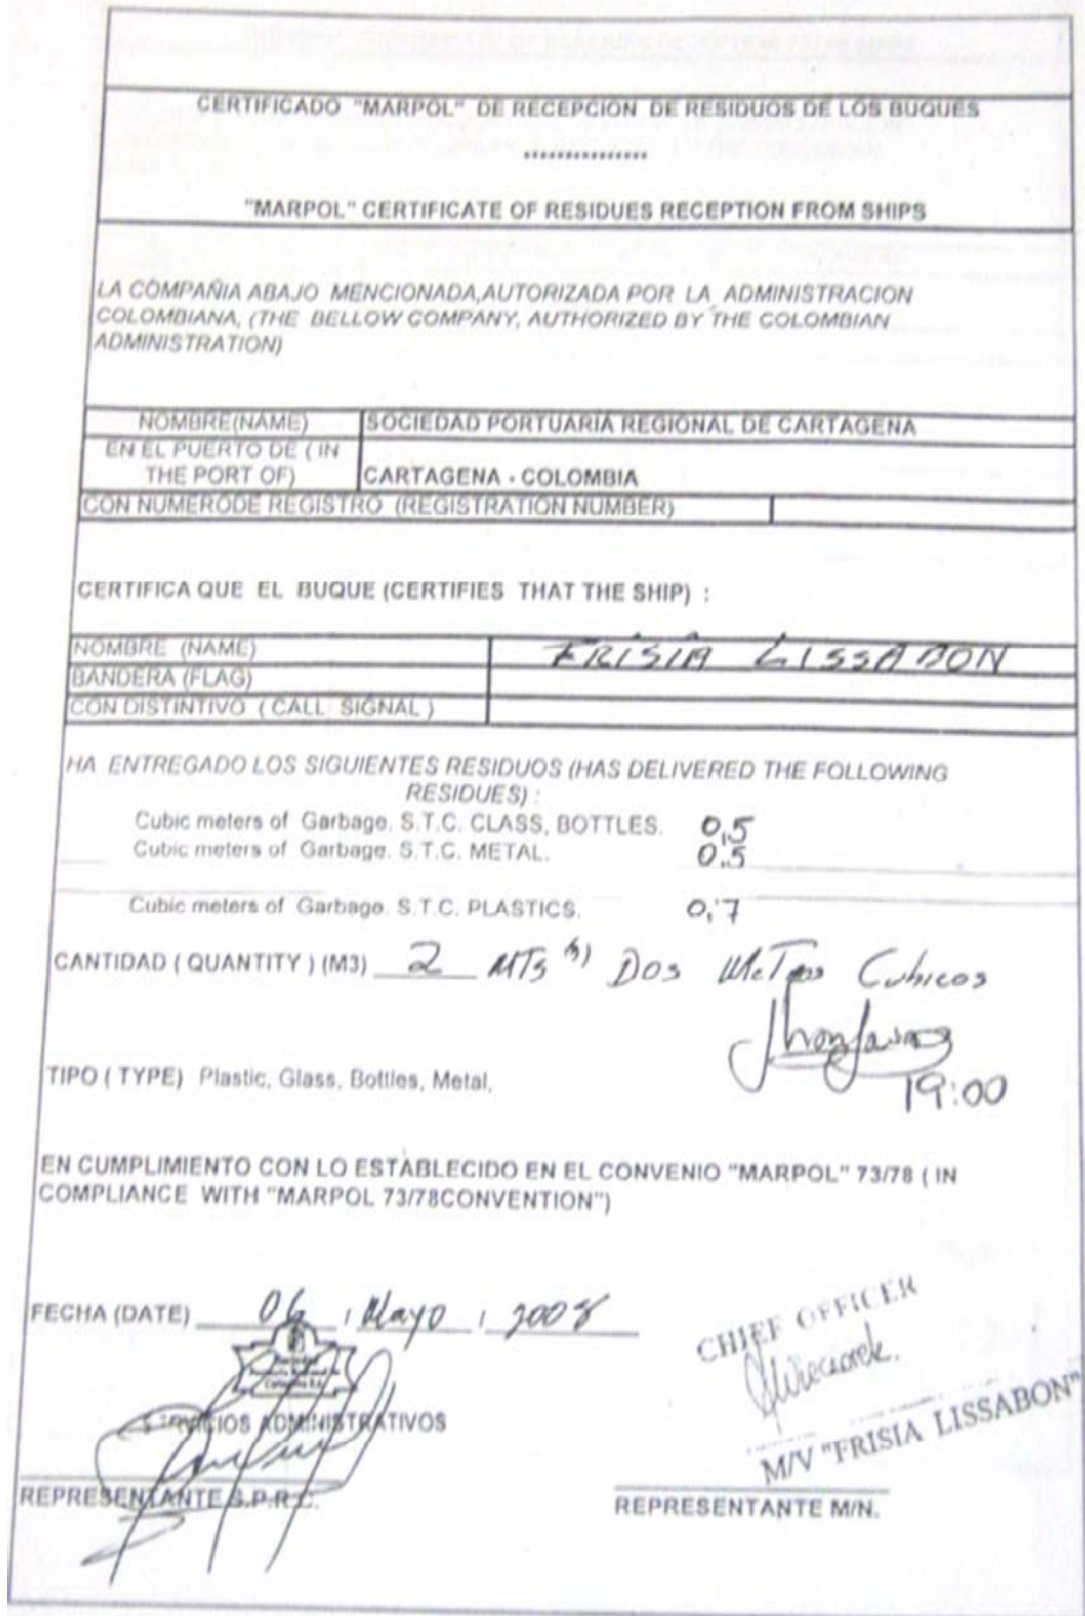 CERTIFICADO "MARPOL" DE RECEPCION DE RESIDUOS DE LOS BUQUES
***************
"MARPOL" CERTIFICATE OF RESIDUES RECEPTION FROM SHIPS
LA COMPAÑIA ABAJO MENCIONADA,AUTORIZADA POR LA ADMINISTRACION
COLOMBIANA, (THE BELLOW COMPANY, AUTHORIZED BY THE COLOMBIAN
ADMINISTRATION)
NOMBRE(NAME) SOCIEDAD PORTUARIA REGIONAL DE CARTAGENA
EN EL PUERTO DE ( IN
THE PORT OF) CARTAGENA - COLOMBIA
CON NUMERODE REGISTRO (REGISTRATION NUMBER)
CERTIFICA QUE EL BUQUE (CERTIFIES THAT THE SHIP) :
NOMBRE (NAME) FRISIA LISSABON
BANDERA (FLAG)
CON DISTINTIVO ( CALL SIGNAL )
HA ENTREGADO LOS SIGUIENTES RESIDUOS (HAS DELIVERED THE FOLLOWING
RESIDUES) :
Cubic meters of Garbage. S.T.C. CLASS, BOTTLES. 0,5
Cubic meters of Garbage. S.T.C. METAL. 0.5
Cubic meters of Garbage. S.T.C. PLASTICS. 0,7
CANTIDAD ( QUANTITY ) (M3) 2 MTS 3) Dos Metros Cubicos
TIPO ( TYPE) Plastic, Glass, Bottles, Metal,
19:00
EN CUMPLIMIENTO CON LO ESTABLECIDO EN EL CONVENIO "MARPOL" 73/78 ( IN
COMPLIANCE WITH "MARPOL 73/78CONVENTION")
FECHA (DATE) 06 / Mayo / 2008
CHIEF OFFICER
SERVICIOS ADMINISTRATIVOS
M/V "FRISIA LISSABON"
REPRESENTANTE S.P.R.C.
REPRESENTANTE M/N.